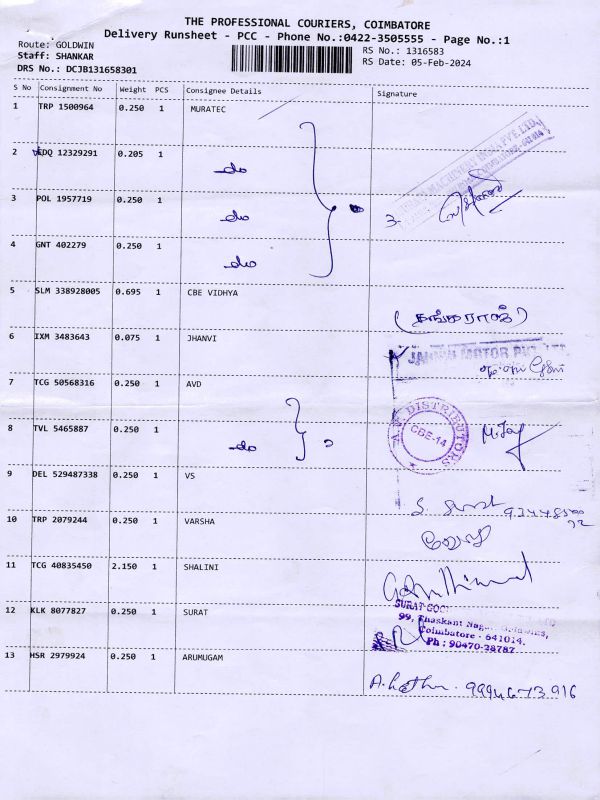 THE PROFESSIONAL COURIERS, COIMBATORE
Delivery Runsheet - PCC - Phone No.:0422-3505555 - Page No.:1
Route: GOLDWIN
Staff: SHANKAR
DRS No.: DCJB131658301
RS No.: 1316583
RS Date: 05-Feb-2024
S No Consignment No Weight PCS Consignee Details Signature
1 TRP 1500964 0.250 1 MURATEC
2 EDQ 12329291 0.205 1 do
3 POL 1957719 0.250 1 do 3.
4 GNT 402279 0.250 1 do
5 SLM 338928005 0.695 1 CBE VIDHYA
(தங்கராஜ்)
6 IXM 3483643 0.075 1 JHANVI
MOTOR PVT LTD
7 TCG 50568316 0.250 1 AVD
8 TVL 5465887 0.250 1 do 2
DISTRIBUTORS
CBE-14
M. Jay
9 DEL 529487338 0.250 1 VS
10 TRP 2079244 0.250 1 VARSHA
11 TCG 40835450 2.150 1 SHALINI
12 KLK 8077827 0.250 1 SURAT
SURAT
99, Thaskant Nagar,
Coimbatore - 641014.
Ph : 90470-38787
13 HSR 2979924 0.250 1 ARUMUGAM
9994673916